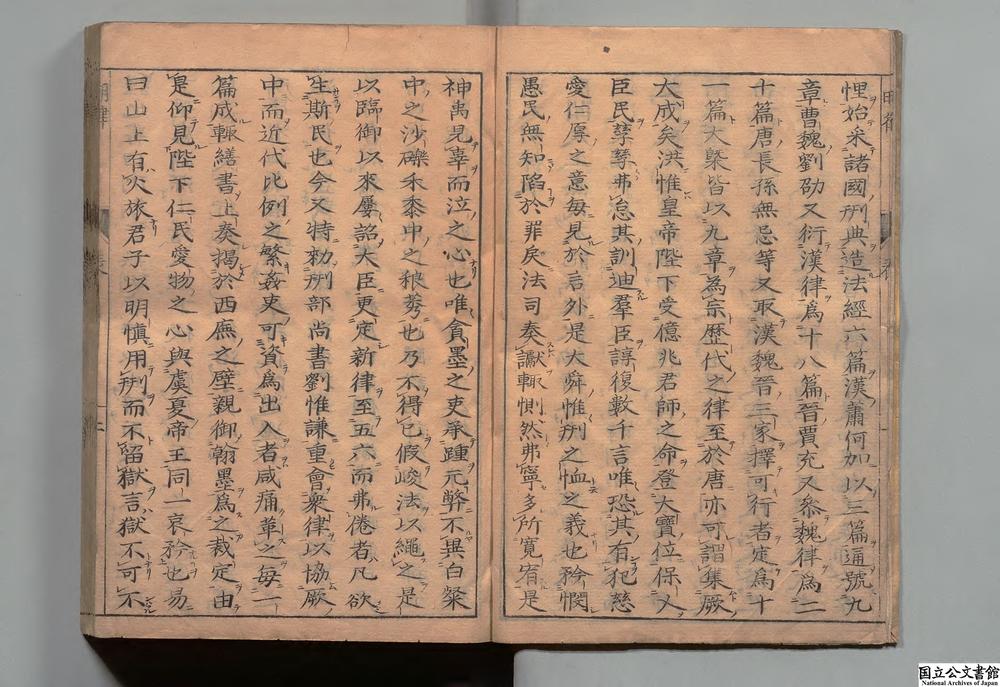 悝始采諸國刑典造法經六篇漢蕭何加以三篇通號九
章曹魏劉劭又衍漢律爲十八篇晉賈充又叅魏律爲二
十篇唐長孫無忌等又取漢魏晉三家擇可行者定爲十
一篇大槩皆以九章為宗歷代之律至於唐亦可謂集厥
大成矣洪惟皇帝陛下受億兆君師之命登大寶位保乂
臣民孳孳弗怠其訓迪羣臣諄復數千言唯恐其有犯慈
愛仁厚之意每見於言外是大舜惟刑之恤之義也矜憫
愚民無知陷於罪戾法司奏讞輒惻然弗寧多所寬宥是
神禹見辜而泣之心也唯貪墨之吏承踵元弊不異白粲
中之沙礫禾黍中之稂莠也乃不得已假峻法以繩之是
以臨御以來屢詔大臣更定新律至五六而弗倦者凡欲
生斯民也今又特勑刑部尚書劉惟謙重會衆律以協厥
中而近代比例之繁姦吏可資爲出入者咸痛革之每一
篇成輒繕書上奏揭於西廡之壁親御翰墨爲之裁定由
是仰見陛下仁民愛物之心與虞夏帝王同一哀矜也易
曰山上有火旅君子以明慎用刑而不留獄言獄不可不
国立公文書館
National Archives of Japan